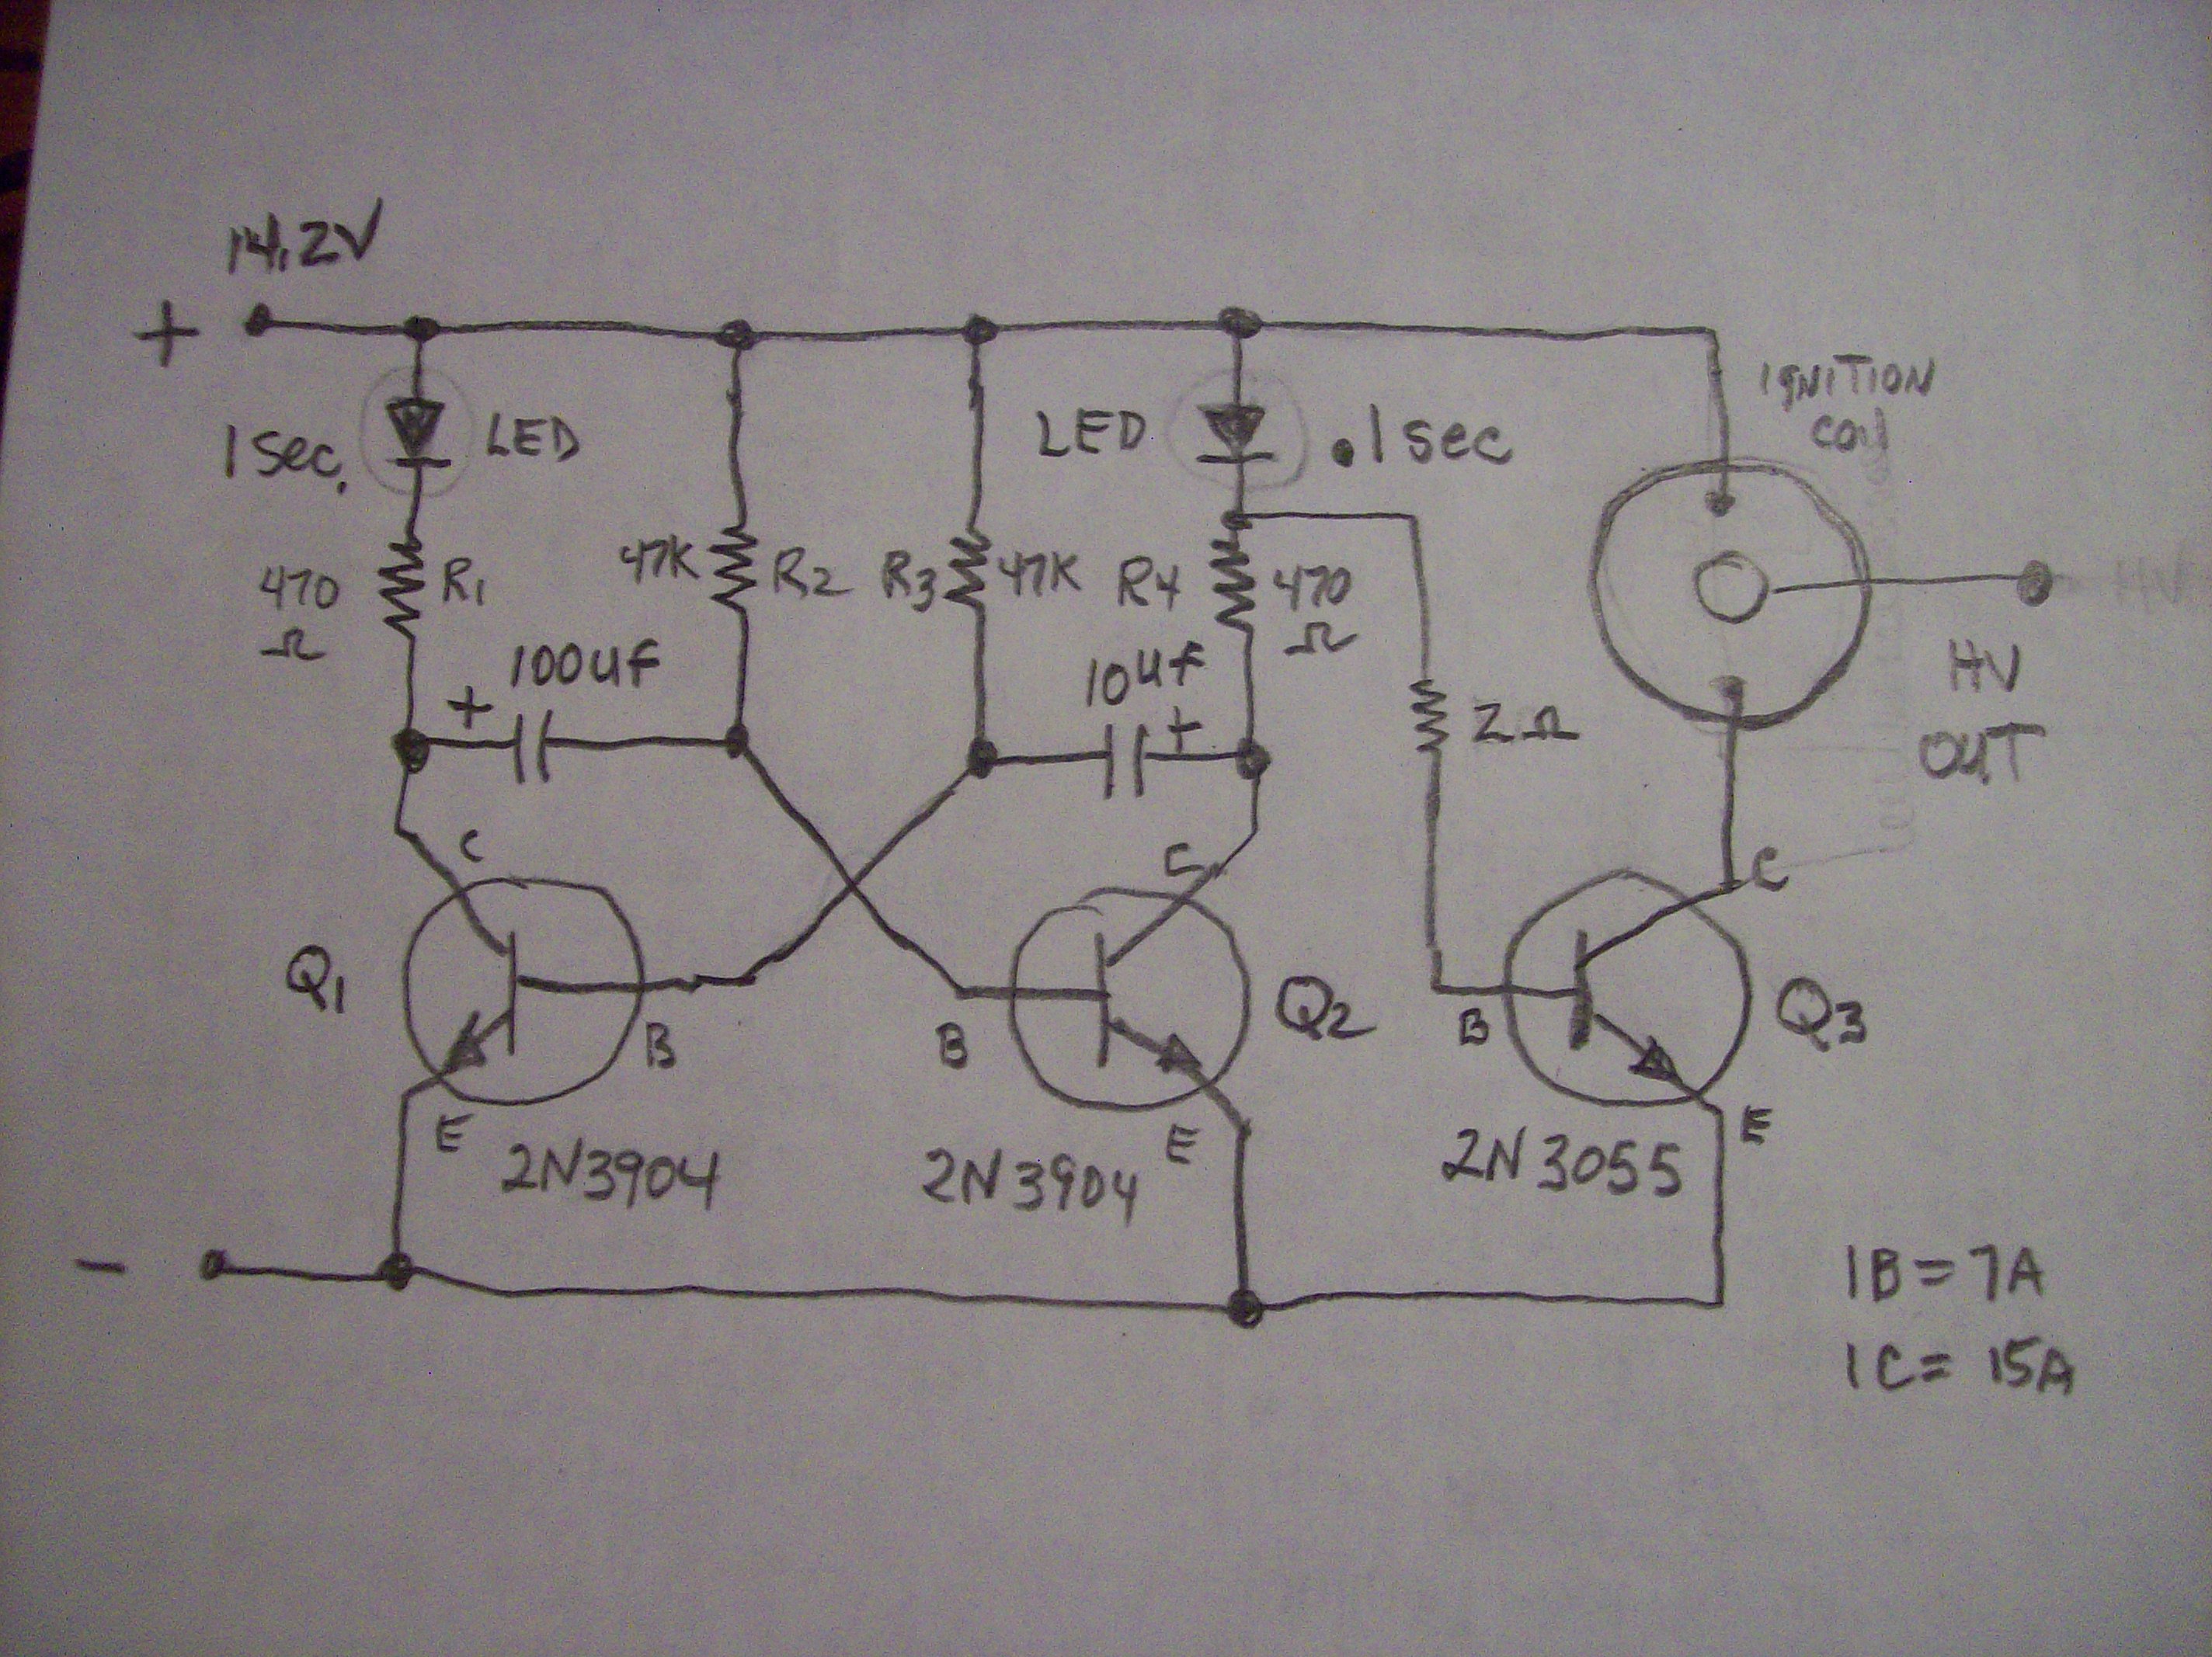 14.2V
+
IGNITION
COIL
1 SEC.
LED
LED
.1 SEC
470
Ω
R1
47K
R2
R3
47K
R4
470
Ω
+
100uf
10uf
+
2Ω
HV
OUT
C
C
C
Q1
B
B
Q2
B
Q3
E
E
E
2N3904
2N3904
2N3055
-
IB = 7A
IC = 15A